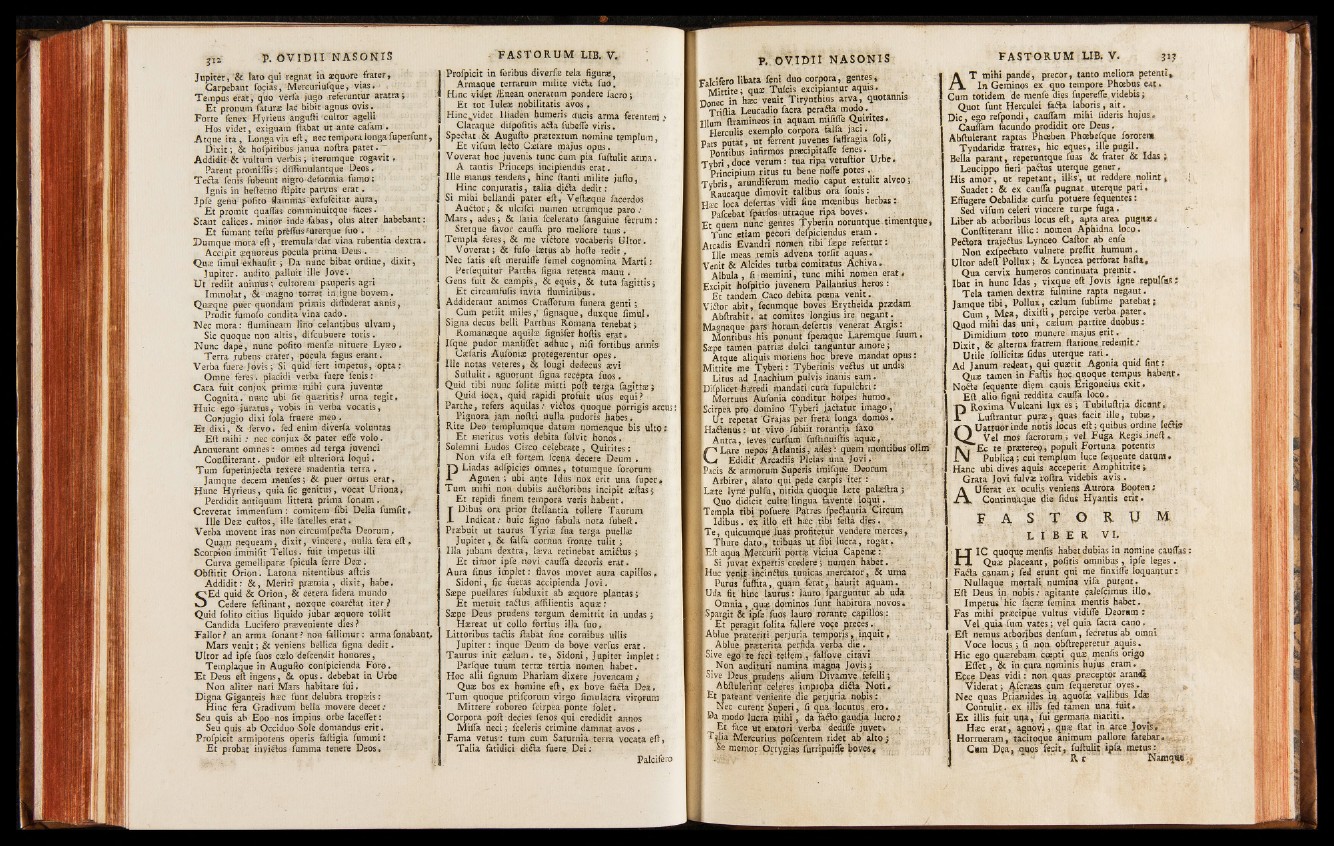 312 P. OVIDII NASONIS
Jupiter, & lato qui regnat in æquore frater,
Carpebant socias, Mercuriusque, vias.
Tempus erat, quo versa jugo referuntur aratra;
Et pronum saturæ lac bibit agnus ovis.
Forte senex Hyrieus angusti cultor agelli
Hos videt, exiguam stabat ut ante casam.
Atque ita, Longa via est, nec tempora longa supersunt,
Dixit; & hospitibus janua nostra patet.
Addidit & vultum verbis; iterumque rogavit.
Parent promissis; dissimulantque Deos.
Tecta senis subeunt nigro deformia fumo;
Ignis in hesterno stipite parvus erat.
Ipse genu posito flammas exsuscitat aura,
Et promit quassas comminuitque faces.
Stant calices. minor inde fabas, olus alter habebant:
Et fumant testu pressus uterque suo.
Dumque mora est, tremula dat vina rubentia dextra.
Accipit æquoreus pocula prima Deus.
Quæ simul exhausit; Da nunc bibat ordine, dixit,
Jupiter. audito palluit ille Jove.
Ut rediit animus; cultorem pauperis agri
Immolat, & magno torret in igne bovem.
Quæque puer quondam primis diffuderat annis,
Prodit fumoso condita vina cado.
Nec mora: flumineam lino celantibus ulvam,
Sic quoque non altis, discubuere toris.
Nunc dape, nunc posito mensæ nituere Lyæo.
Terra rubens crater, pocula fagus erant.
Verba fuere Jovis; Si quid fert impetus, opta:
Omne feres. placidi verba fuere senis:
Cara fuit conjux primæ mihi cura juventæ
Cognita. nunc ubi sit quæritis? urna tegit.
Huic ego juratus, vobis in verba vocatis,
Conjugio dixi sola fruere meo.
Et dixi, & servo. sed enim diversa voluntas
Est mihi: nec conjux & pater esse volo.
Annuerant omnes: omnes ad terga juvenci
Constiterant. pudor est ulteriora loqui.
Tum superinjecta texere madentia terra.
Jamque decem menses; & puer ortus erat.
Hunc Hyrieus, quia sic genitus, vocat Uriona.
Perdidit antiquum littera prima sonum.
Creverat immensum: comitem sibi Delia sumsit.
Ille Deæ custos, ille satelles erat.
Verba movent iras non circumspecta Deorum.
Quam nequeam, dixit, vincere, nulla fera est.
Scorpion immisit Tellus. fuit impetus illi
Curva gemelliparæ spicula ferre Deæ.
Obstitit Orion. Latona nitentibus astris
Addidit: &, Meriti præmia, dixit, habe.
SEd quid & Orion, & cetera sidera mundo
Cedere festinant, noxque coarctat iter?
Quid solito citius liquido jubar æquore tollit
Candida Lucifero præveniente dies?
Fallor? an arma sonant? non fallimur: arma sonabant.
Mars venit; & veniens bellica signa dedit.
Ultor ad ipse suos cælo descendit honores,
Templaque in Augusto conspicienda Foro.
Et Deus est ingens, & opus. debebat in Urbe
Non aliter nati Mars habitare sui.
Digna Giganteis hæc sunt delubra tropæis:
Hinc fera Gradivum bella movere decet:
Seu quis ab Eoo nos impius orbe lacesset:
Seu quis ab Occiduo Sole domandus erit.
Prospicit armipotens operis fastigia summi:
Et probat invictos summa tenere Deos.
FASTORUM LIB. V.
Prospicit in foribus diversæ tela figuræ,
Armaque terrarum milite victa suo.
Hinc videt Ænean oneratum pondere sacro;
Et tot Iuleæ nobilitatis avos.
Hinc videt Iliaden humeris ducis arma ferentem;
Claraque dispositis acta subesse viris.
Spectat & Augusto prætextum nomine templum,
Et visum lecto Cæsare majus opus.
Voverat hoc juvenis tunc cum pia sustulit arma.
A tantis Princeps incipiendus erat.
Ille manus tendens, hinc stanti milite justo,
Hinc conjuratis, talia dicta dedit:
Si mihi bellandi pater est, Vestæque sacerdos
Auctor; & ulcisci numen utrumque paro:
Mars, ades; & satia scelerato sanguine ferrum:
Stetque favor causa pro meliore tuus.
Templa feres, & me victore vocaberis Ultor.
Voverat; & fuso lætus ab hoste redit.
Nec satis est meruisse semel cognomina Marti:
Persequitur Partha signa retenta manu.
Gens fuit & campis, & equis, & tuta sagittis;
Et circumfusis invia fluminibus.
Addiderant animos Crassorum funera genti;
Cum periit miles, signaque, duxque simul.
Signa decus belli Parthus Romana tenebat;
Romanæque aquilæ signifer hostis erat.
Isque pudor mansisset adhuc, nisi fortibus armis
Cæsaris Ausoniæ protegerentur opes.
Ille notas veteres, & longi dedecus ævi
Sustulit. agnorunt signa recepta suos.
Quid tibi nunc solitæ mitti post terga sagittæ;
Quid loca, quid rapidi profuit usus equi?
Parthe, refers aquilas: victos quoque porrigis arcus:
Pignora jam nostri nulla pudoris habes.
Rite Deo templumque datum nomenque bis ulto:
Et meritus votis debita solvit honos.
Solemni Ludos Circo celebrate, Quirites:
Non visa est fortem scena decere Deum.
PLiadas adspicies omnes, totumque sororum
Agmen; ubi ante Idus nox erit una super.
Tum mihi non dubiis auctoribus incipit æstas;
Et tepidi finem tempora veris habent.
IDibus ora prior stellantia tollere Taurum
Indicat: huic signo fabula nota subest.
Præbuit ut taurus Tyriæ sua terga puellæ
Jupiter, & falsa cornua fronte tulit;
Illa jubam dextra, læva retinebat amictus;
Et timor ipse novi causa decoris erat.
Aura sinus implet: flavos movet aura capillos.
Sidoni, sic fueras accipienda Jovi.
Sæpe puellares subduxit ab æquore plantas;
Et metuit tactus assilientis aquæ:
Sæpe Deus prudens tergum demittit in undas;
Hæreat ut collo fortius illa suo.
Littoribus tactis stabat sine cornibus ullis
Jupiter: inque Deum de bove versus erat.
Taurus init cælum. te, Sidoni, Jupiter implet:
Parsque tuum terræ tertia nomen habet.
Hoc alii signum Phariam dixere juvencam;
Quæ bos ex homine est, ex bove facta Dea.
Tum quoque priscorum virgo simulacra virorum
Mittere roboreo scirpea ponte solet.
Corpora post decies senos qui credidit annos
Missa neci; sceleris crimine damnat avos.
Fama vetus: tum cum Saturnia terra vocata est,
Talia fatidici dicta fuere Dei:
Falcifero
P. OVIDII NASONIS
Falcifero libata seni duo corpora, gentes,
Mittite; quæ Tuscis excipiantur aquis.
Donec in hæc venit Tirynthius arva, quotannis
Tristia Leucadio sacra peracta modo.
Illum stramineos in aquam misisse Quirites.
Herculis exemplo corpora falsa jaci.
Pars putat, ut ferrent juvenes suffragia soli,
Pontibus infirmos præcipitasse senes.
Tybri, doce verum: tua ripa vetustior Urbe.
Principium ritus tu bene nosse potes.
Tybris, arundiferum medio caput extulit alveo;
Raucaque dimovit talibus ora sonis:
Hæc loca desertas vidi sine mœnibus herbas:
Pascebat sparsos utraque ripa boves.
Et quem nunc gentes Tyberin noruntque timentque,
Tunc etiam pecori despiciendus eram.
Arcadis Evandri nomen tibi sæpe refertur:
Ille meas remis advena torsit aquas.
Venit & Alcides turba comitatus Achiva.
Albula, si memini, tunc mihi nomen erat.
Excipit hospitio juvenem Pallantius heros:
Et tandem Caco debita pœna venit.
Victor abit, secumque boves Erytheida prædam
Abstrahit. at comites longius ire negant.
Magnaque pars horum desertis venerat Argis:
Montibus his ponunt spemque Laremque suum.
Sæpe tamen patriæ dulci tanguntur amore;
Atque aliquis moriens hoc breve mandat opus:
Mittite me Tyberi: Tyberinis vectus ut undis
Litus ad Inachium pulvis inanis eam.
Displicet hæredi mandati cura sepulchri:
Mortuus Ausonia conditur hospes humo.
Scirpea pro domino Tyberi jactatur imago,
Ut repetat Grajas per freta longa domos.
Hactenus: ut vivo subiit rorantia saxo
Antra, leves cursum sustinuistis aquæ.
CLare nepos Atlantis, ades: quem montibus olim
Edidit Arcadiis Pleias una Jovi.
Pacis & armorum Superis imisque Deorum
Arbiter, alato qui pede carpis iter:
Læte lyræ pulsu, nitida quoque læte palæstra;
Quo didicit culte lingua favente loqui.
Templa tibi posuere Patres spectantia Circum
Idibus. ex illo est hæc tibi festa dies.
Te, quicumque suas profitetur vendere merces,
Thure dato, tribuas ut sibi lucra, rogat.
Est aqua Mercurii portæ vicina Capenæ:
Si juvat expertis credere; numen habet.
Huc venit incinctus tunicas mercator, & urna
Purus suffita, quam ferat, haurit aquam.
Uda fit hinc laurus: lauro sparguntur ab uda
Omnia, quæ dominos sunt habitura novos.
Spargit & ipse suos lauro rorante capillos:
Et peragit solita fallere voce preces.
Ablue præteriti perjuria temporis, inquit,
Ablue præterita perfida verba die.
Sive ego te feci testem, falsove citavi
Non audituri numina magna Jovis;
Sive Deus prudens alium Divamve fefelli;
Abstulerint celeres improba dicta Noti.
Et pateant veniente die perjuria nobis:
Nec curent Superi, si qua locutus ero.
Da modo lucra mihi, da facto gaudia lucro:
Et face ut emtori verba dedisse juvet.
Talia Mercurius poscentem ridet ab alto;
Se memor Ortygias surripuisse boves.
FASTORUM LIB. V. 313
AT mihi pande, precor, tanto meliora petenti,
In Geminos ex quo tempore Phœbus eat.
Cum totidem de mense dies superesse videbis;
Quot sunt Herculei facta laboris, ait.
Dic, ego respondi, caussam mihi sideris hujus.
Caussam facundo prodidit ore Deus.
Abstulerant raptas Phœben Phœbesque sororem
Tyndaridæ fratres, hic eques, ille pugil.
Bella parant, repetuntque suas & frater & Idas;
Leucippo fieri pactus uterque gener.
His amor, ut repetant, illis, ut reddere nolint;
Suadet: & ex caussa pugnat uterque pari.
Effugere Oebalidæ cursu potuere sequentes:
Sed visum celeri vincere turpe fuga.
Liber ab arboribus locus est, apta area pugnæ.
Constiterant illic: nomen Aphidna loco.
Pectora trajectus Lynceo Castor ab ense
Non exspectato vulnere pressit humum.
Ultor adest Pollux; & Lyncea perforat hasta,
Qua cervix humeros continuata premit.
Ibat in hunc Idas, vixque est Jovis igne repulsus:
Tela tamen dextræ fulmine rapta negant.
Jamque tibi, Pollux, cælum sublime patebat;
Cum, Mea, dixisti, percipe verba pater.
Quod mihi das uni, cælum partire duobus:
Dimidium toto munere majus erit.
Dixit, & alterna fratrem statione redemit:
Utile sollicitæ sidus uterque rati.
Ad Janum redeat, qui quærit Agonia quid sint:
Quæ tamen in Fastis hoc quoque tempus habent.
Nocte sequente diem canis Erigoneius exit.
Est alio signi reddita caussa loco.
PRoxima Vulcani lux est; Tubilustria dicunt.
Lustrantur puræ, quas facit ille, tubæ.
QUattuor inde notis locus est; quibus ordine lectis
Vel mos sacrorum, vel Fuga Regis inest.
NEc te prætereo, populi Fortuna potentis
Publica; cui templum luce sequente datum.
Hanc ubi dives aquis acceperit Amphitrite;
Grata Jovi fulvæ rostra videbis avis.
AUferat ex oculis veniens Aurora Booten:
Continuaque die sidus Hyantis erit.
FASTORUM
LIBER VI.
HIC quoque mensis habet dubias in nomine caussas:
Quæ placeant, positis omnibus, ipse leges.
Facta canam; sed erunt qui me finxisse loquantur:
Nullaque mortali numina visa putent.
Est Deus in nobis: agitante calescimus illo.
Impetus hic sacræ semina mentis habet.
Fas mihi præcipue vultus vidisse Deorum:
Vel quia sum vates; vel quia sacra cano.
Est nemus arboribus densum, secretus ab omni
Voce locus; si non obstreperetur aquis.
Hic ego quærebam cœpti quæ mensis origo
Esset, & in cura nominis hujus eram.
Ecce Deas vidi: non quas præceptor arandi
Viderat; Ascræas cum sequeretur oves.
Nec quas Priamides in aquosæ vallibus Idæ
Contulit. ex illis sed tamen una fuit.
Ex illis fuit una, sui germana mariti.
Hæc erat, agnovi, quæ stat in arce Jovis.
Horrueram, tacitoque animum pallore fatebar.
Cum Dea, quos fecit, sustulit ipsa metus:
R r
Namque